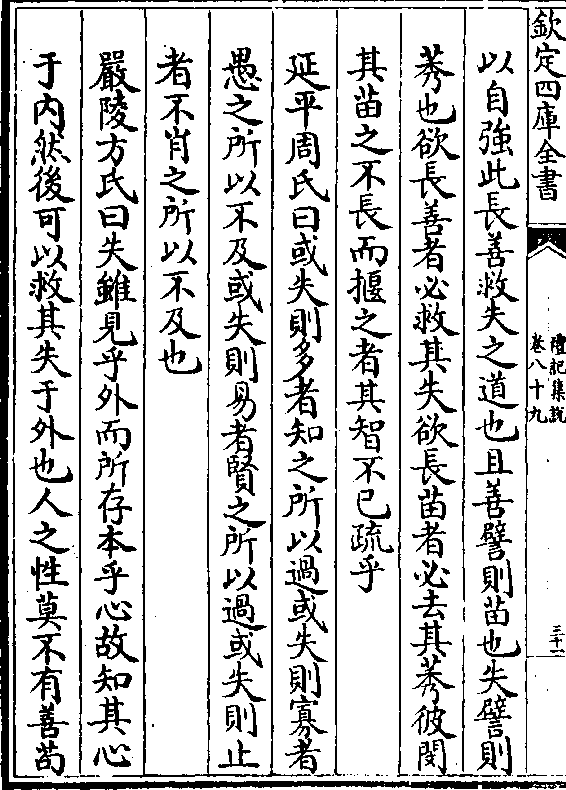 欽定四庫全書
禮記集說
卷八十九
三十一
以自強此長善救失之道也且善譬則苗也失譬則
莠也欲長善者必救其失欲長苗者必去其莠彼閔
其苗之不長而揠之者其智不已疏乎
延平周氏曰或失則多者知之所以過或失則寡者
愚之所以不及或失則易者賢之所以過或失則止
者不肖之所以不及也
嚴陵方氏曰失雖見乎外而所存本乎心故知其心
于内然後可以救其失于外也人之性莫不有善苟